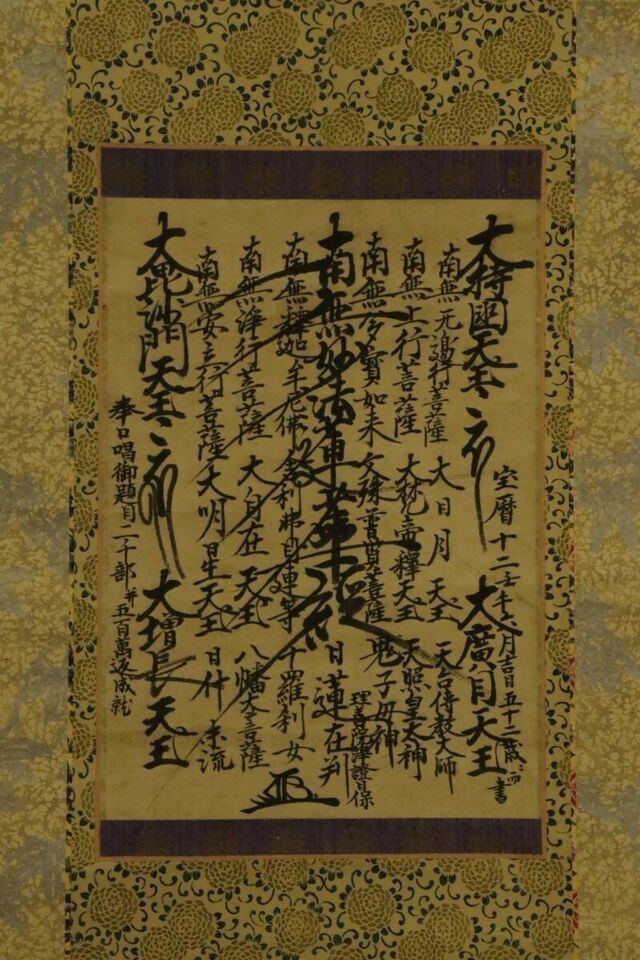 宝暦十二壬午六月吉日五十二歳而書
大持國天王 大廣目天王
南無无邊行菩薩 大日月天王 天台傳教大師
南無上行菩薩 大梵帝釋天王 天照皇太神
南無多寳如来 文殊普賢菩薩 鬼子母神
日保
南無妙法蓮華經 日蓮在判
南無釋迦牟尼佛 舎利弗目連等 十羅刹女
南無浄行菩薩 大自在天王 八幡大菩薩
南無安立行菩薩 大明星天王 日什末流
大毘沙門天王 大増長天王
奉口唱御題目二千部并五百萬返成就